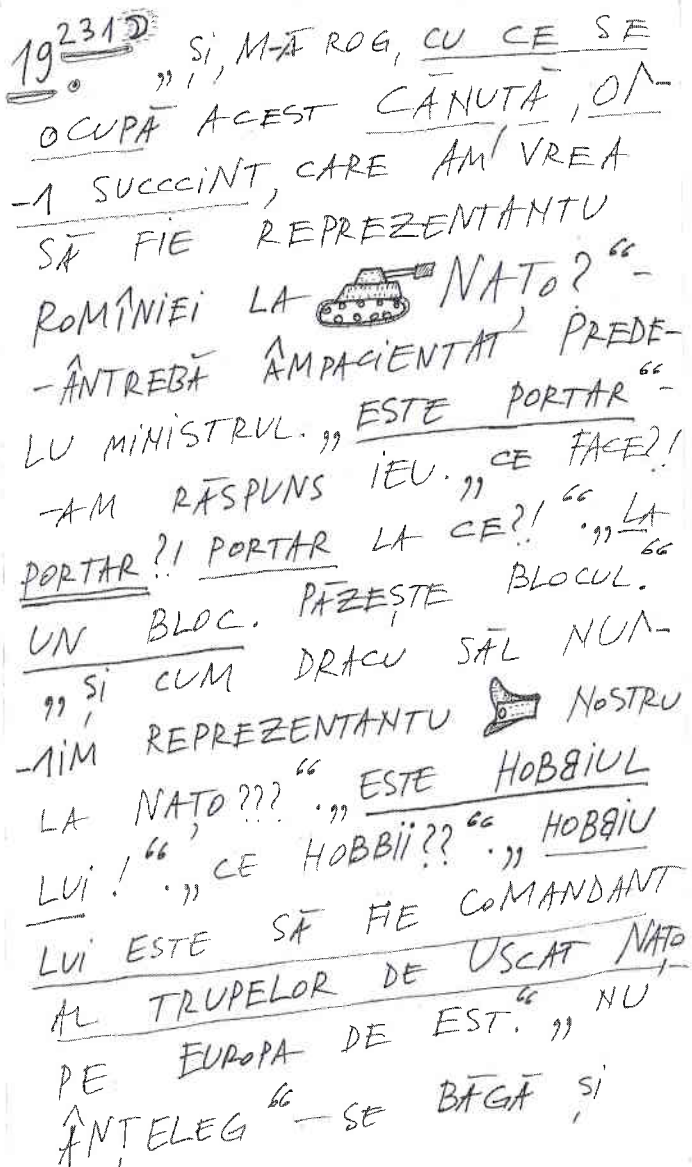 19.231D „ȘI, M-Ă ROG, CU CE SE
OCUPĂ ACEST CĂNUTĂ, OM-
-1 SUCCCINT, CARE AM' VREA
SĂ FIE REPREZENTANTU
ROMÎNIEI LA NAȚO?“-
-ÂNTREBĂ ÂMPACIENTAT PREDE-
LU MINISTRUL. „ESTE PORTAR“-
-AM RĂSPUNS IEU. „CE FACE?!
PORTAR?! PORTAR LA CE?!“. „LA
UN BLOC. PĂZEȘTE BLOCUL.“
„ȘI CUM DRACU SĂL NUM-
-1IM REPREZENTANTU NOSTRU
LA NAȚO???“. „ESTE HOBBIUL
LUI!“. „CE HOBBII??“. „HOBBIU
LUI ESTE SĂ FIE COMANDANT
AL TRUPELOR DE USCAT NAȚO
PE EUROPA DE EST.“ „NU
ÂNȚELEG“ – SE BĂGĂ ȘI